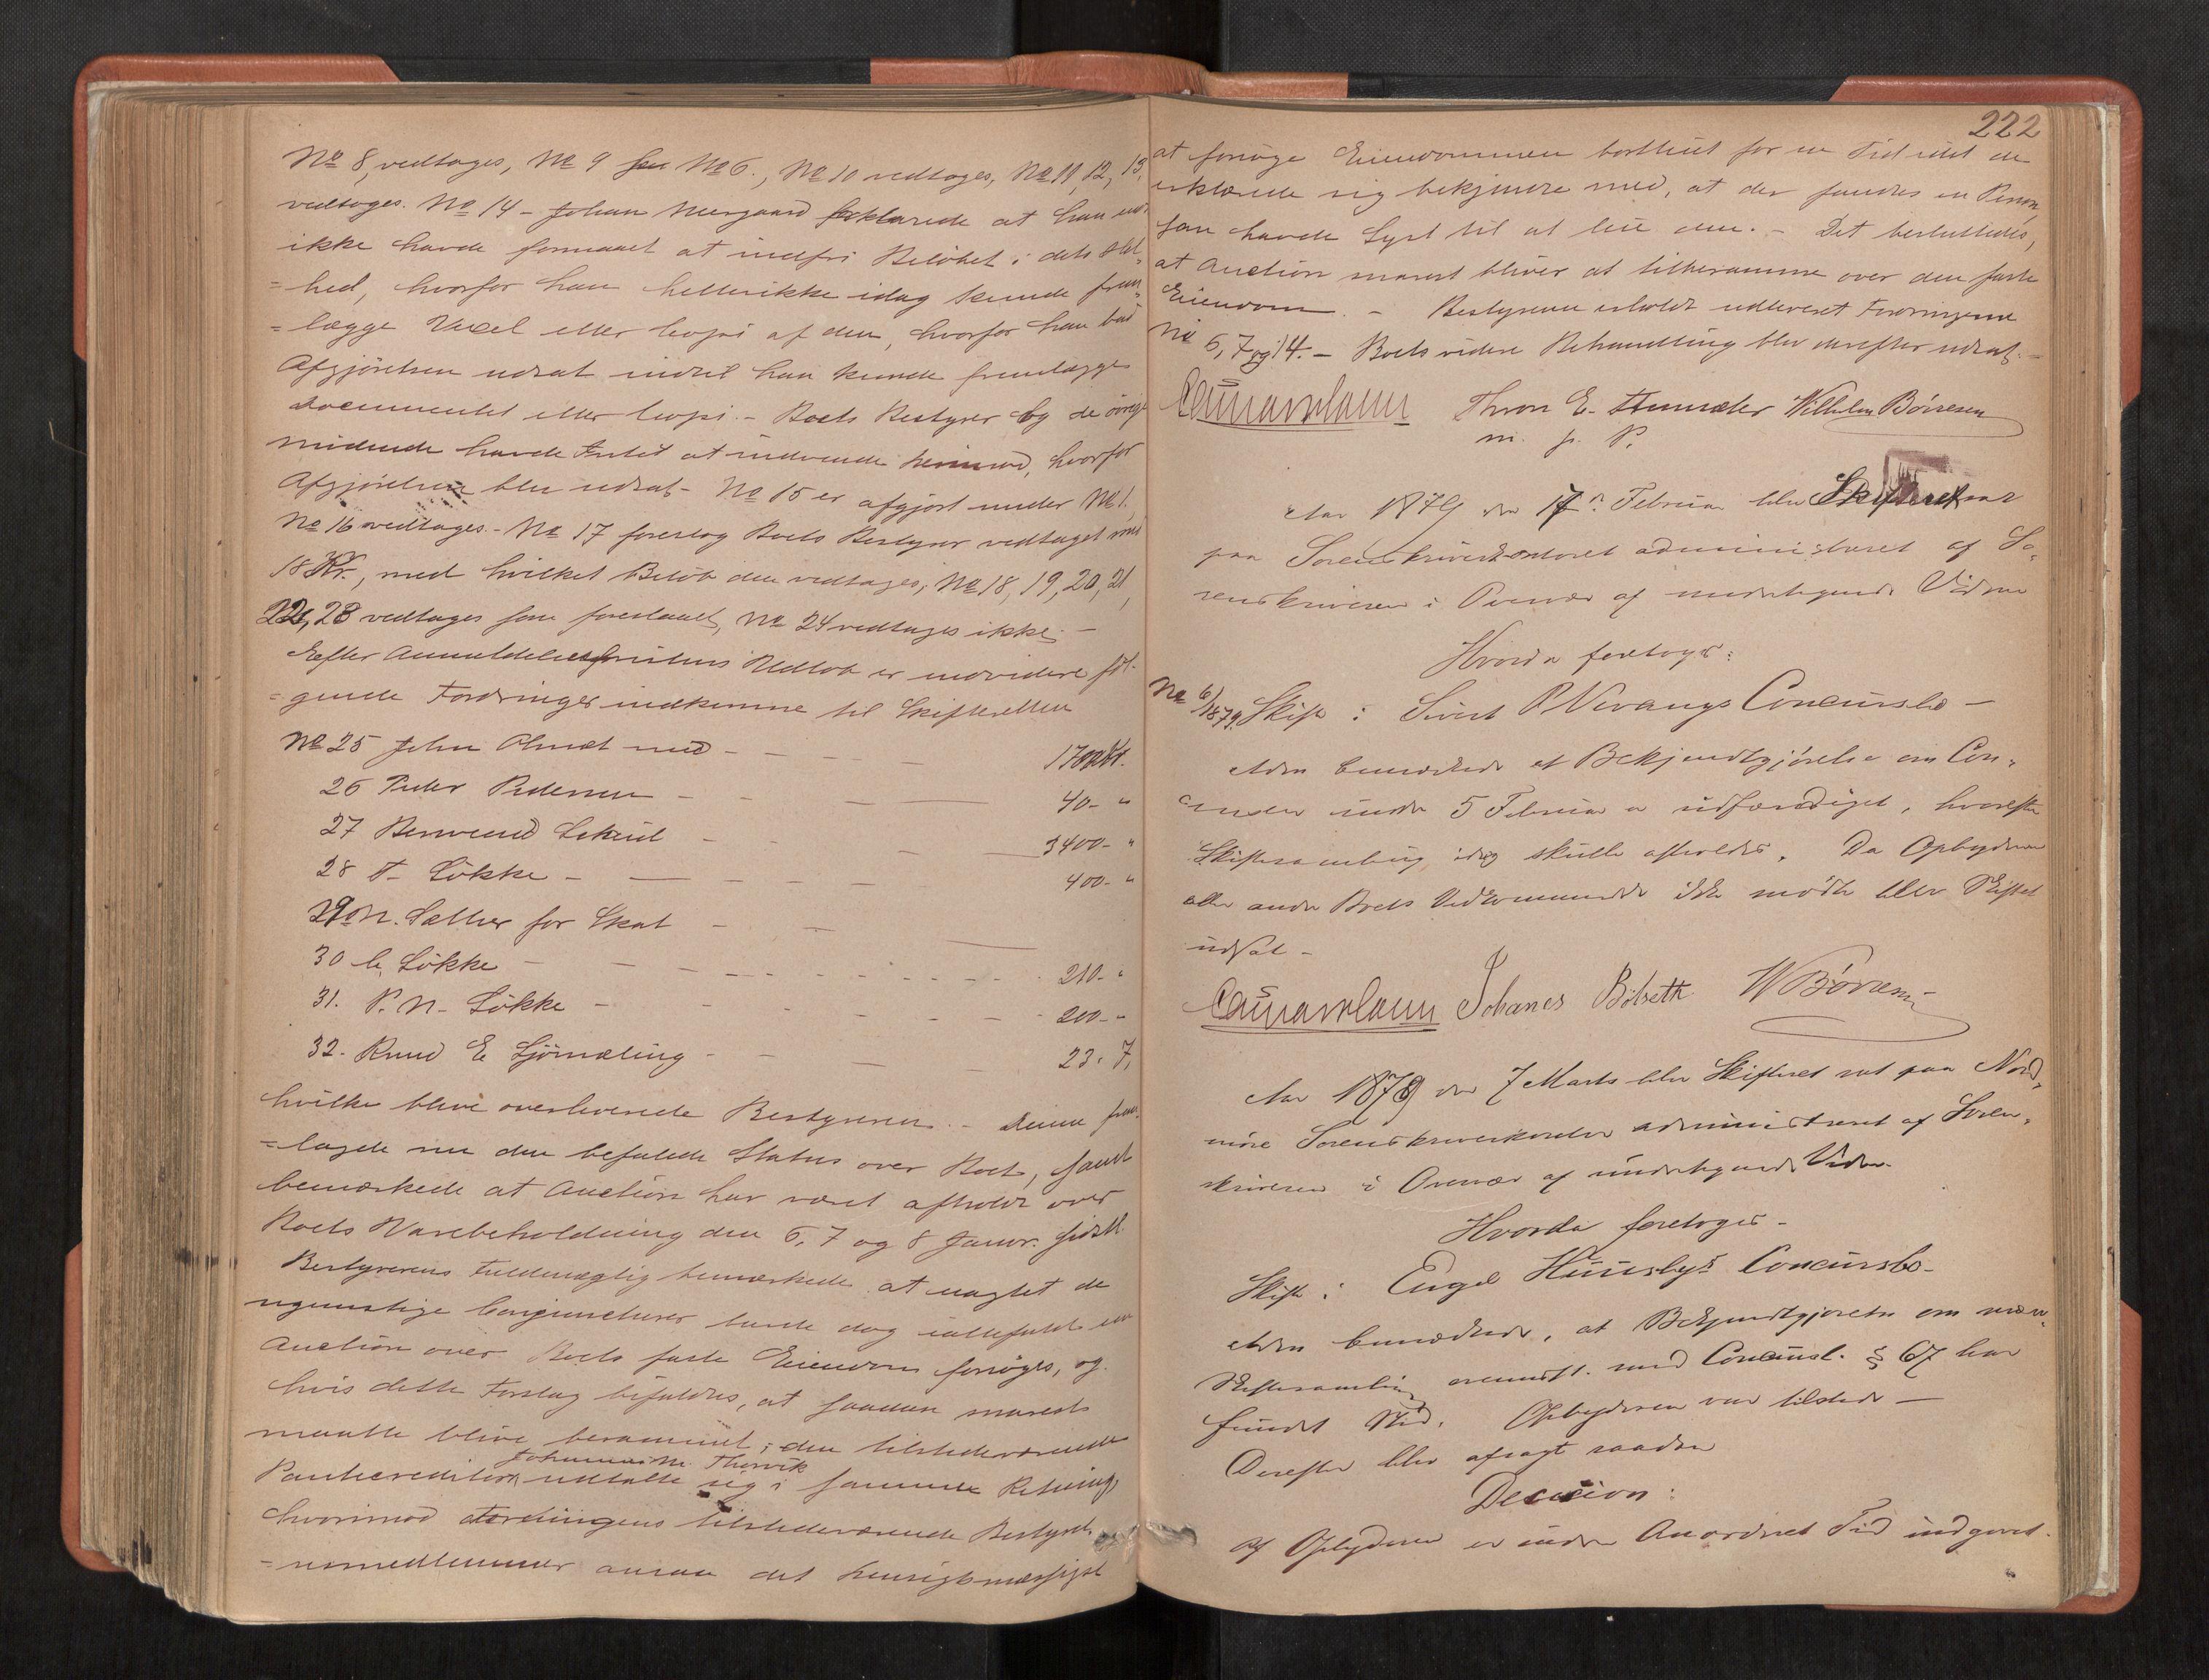 No 8, vedtages, No 9 som No 6., No 10 vedtages, No 11, 12, 13,
vedtages. No 14 - Johan Neergaard forklarede at han endnu
ikke havde formaaet at indfri Beløbet i dets Hel-
=hed, hvorfor han hellerikke idag kunde frem-
=lægge Vexel eller Copi af den, hvorfor han bad
Afgjørelsen udsat indtil han kunde fremlægge
Documentet eller Copi. - Boets Bestyrer og de øvrige
mødende havde Intet at indvende herimod, hvorfor
Afgjørelsen blev udsat - No 15 er afgjort under No 1.
No 16 vedtages. - No 17 foreslog Boets Bestyrer vedtaget med
18 Kr., med hvilket Beløb den vedtages, No 18, 19, 20, 21,
22, 23 vedtages som foreslaaet, No 24 vedtages ikke. -
Efter Anmeldelsesfristens Udløb er endvidere føl-
=gende Fordringer indkomne til Skifteretten
No 25 John med - - - -
26 Peder Pedersen - - - - 40 - "
27 - - - 3400 - "
28 T. Løkke - - - - - 400 - "
29 N. Sæther for Skat - - -
30 C. Løkke - - - - - 210 - "
31. P. N. Løkke - - - - - 200 - "
32. Knud E. - - - - 23. 7.
hvilke bleve overleverede Bestyreren. - Denne frem-
=lagde nu den befalede Status over Boet, samt
bemærkede at Auction har været afholdt over
Boets Varebeholdning den 6, 7 og 8 Januar sidstl.
Bestyrerens Fuldmægtig bemærkede at uagtet de
ugunstige Conjuncturer burde dog ialtefald en
Auction over Boets faste Eiendom forsøges, og
hvis dette Forslag bifaldes, at saadan snarest
maatte blive berammet; den tilstedeværende
Pantecreditor Johannes Thorvik udtalte sig i samme Retning,
hvorimod tilstedeværende Bestyrel-
=sesmedlemmer ansaa det hensigtsmæssigst
222
at forsøge Eiendommen bortleiet for en Tid idet de
erklærede sig bekjendte med, at der fandtes en Person,
som havde Lyst til at leie den. - Det besluttedes,
at Auction snarest bliver at tilberamme over den faste
Eiendom. - Bestyreren erholdt udleveret Fordringerne
No 6, 7 og 14. - Boets videre Behandling blev derefter udsat. -
Thron E. Wilhelm Børresen
m. p. P.
Aar 1879 den 17de Februar blev Skifteret sat
paa Sorenskriverkontoret administreret af So-
renskriveren i Overvær af undertegnede Vidner
Hvorda foretoges:
No 6/1879. Skifte i Sivert P. Concursbo -
Adm bemærkede at Bekjendtgjørelse om Con-
under 5 Februar er udfærdiget, hvorefter
Skiftesamling idag skulde afholdes. Da Opbyderen
eller andre Boets Vedkommende ikke mødte blev Skiftet
udsat -
Johanes Bolseth W Børresen
Aar 1879 den 7 Marts blev Skifteret sat paa Nord-
møre Sorenskriverkontor administreret af Soren-
skriveren i Overvær af undertegnede Vidner.
Hvorda foretoges -
Skifte i Engel Huusbys Concursbo -
Adm bemærkede, at Bekjendtgjørelse om
Skiftesamling overensst. med Concursl. § 67 har
fundet Sted. Opbyderen var tilstede -
Derefter blev afsagt saadan
Decision:
Af Opbyderen er inden Anordnet Tid indgivet